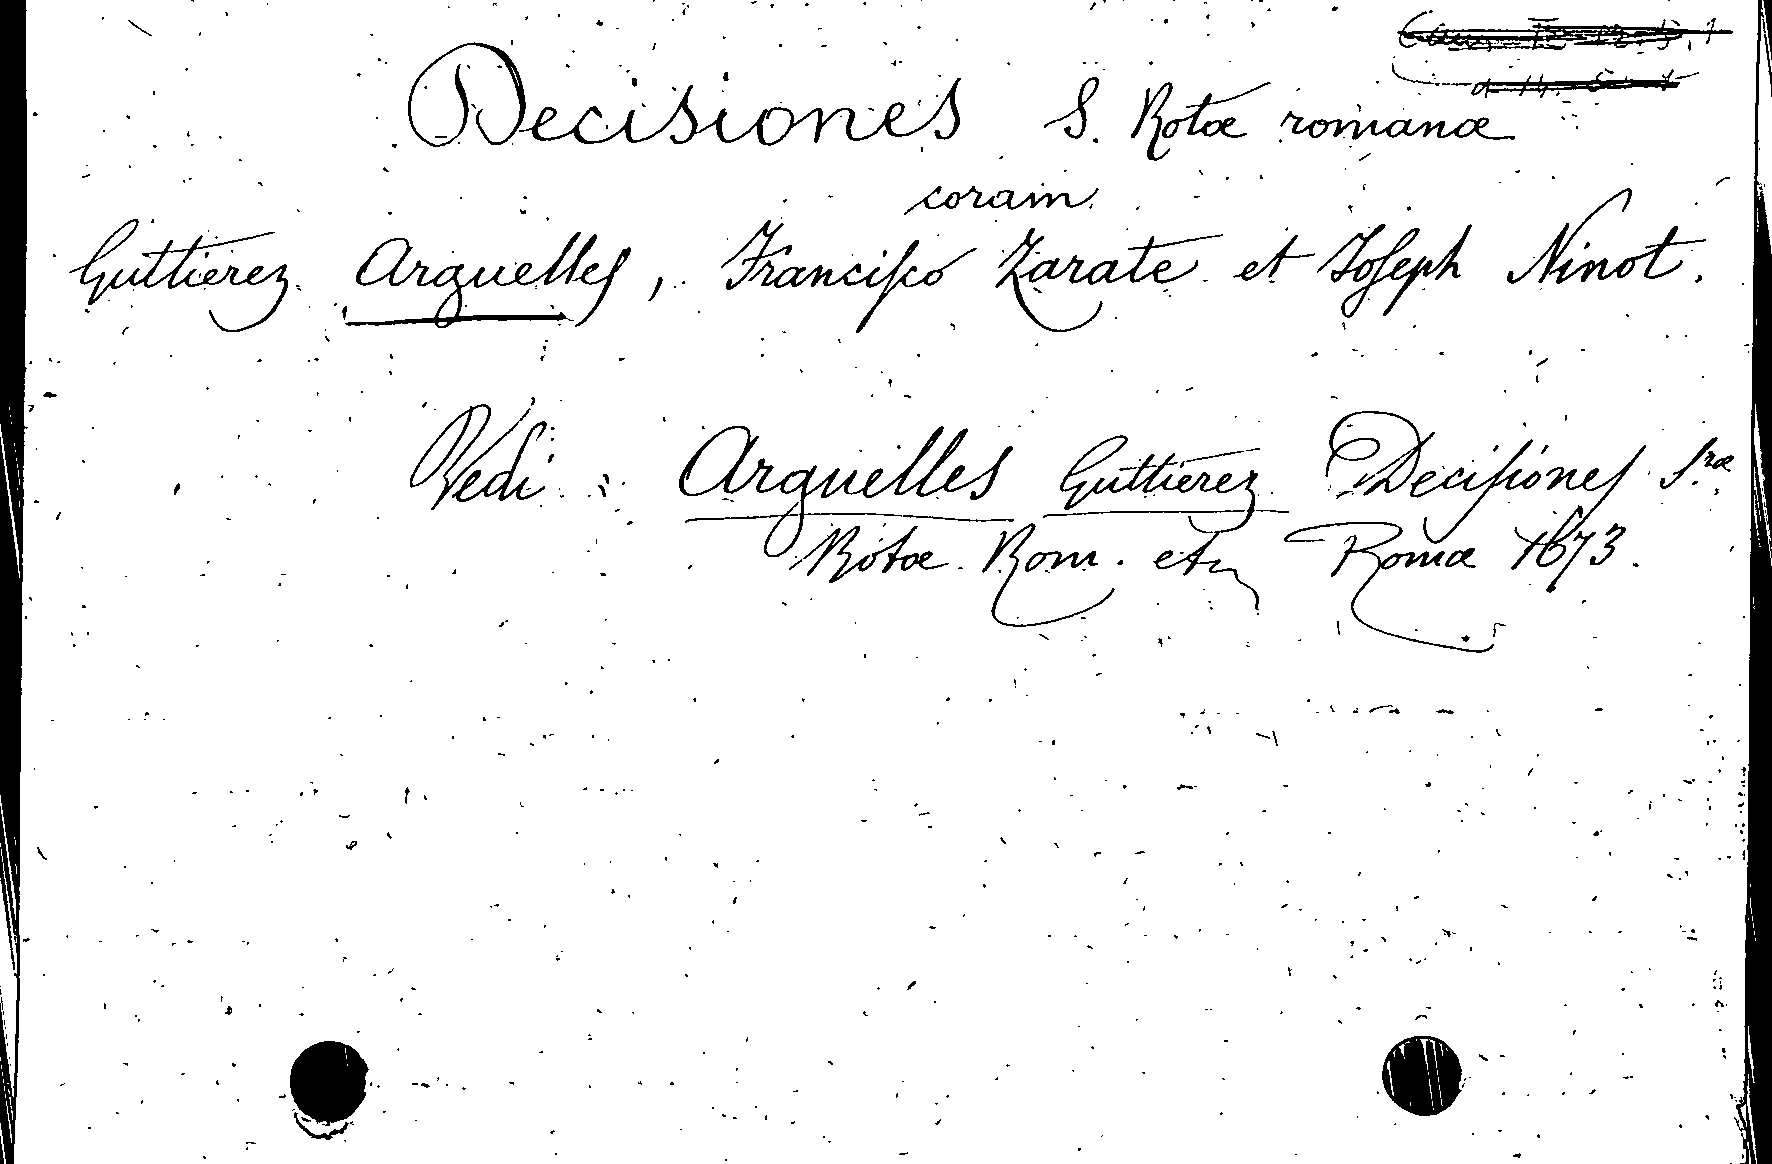 Decisiones S. Rotæ romanæ
coram
Guttierez Arguelles, Francisco Zarate et Joseph Ninot.
Vedi : Arguelles Guttierez Decisiones S.ræ
Rotæ Rom. etc Romæ 1673.